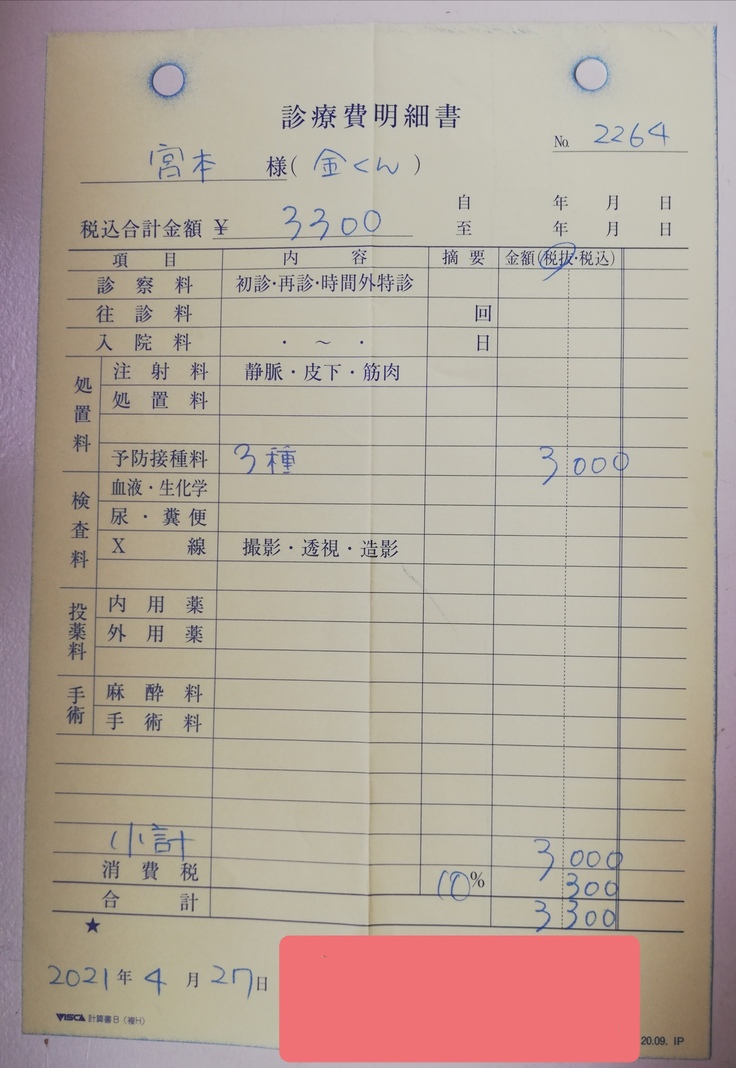 診療費明細書
No. 2264
宮本 様(金くん)
自 年 月 日
税込合計金額 ¥ 3300 至 年 月 日
項目 内容 摘要 金額(税抜・税込)
診察料 初診・再診・時間外特診
往診料 回
入院料 ・ 〜 ・ 日
処置料
注射料 静脈・皮下・筋肉
処置料
予防接種料 3種 3000
検査料
血液・生化学
尿・糞便
X線 撮影・透視・造影
投薬料
内用薬
外用薬
手術
麻酔料
手術料
小計 3000
消費税 10% 300
合計 3300
★
2021年 4月 27日
VISCA 計算書B(複H) 20.09. IP